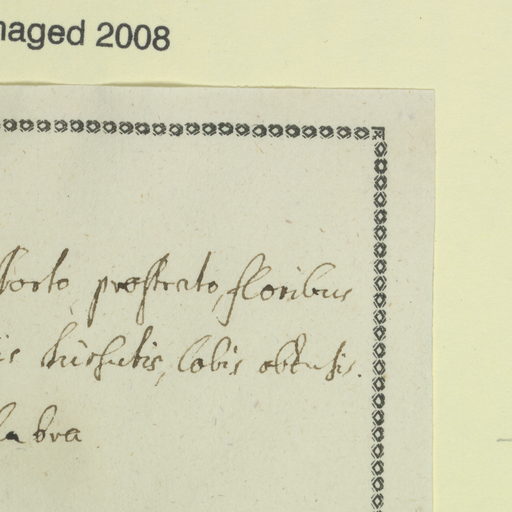 maged 2008
prostrato, floribus
hirsutis, lobis obtusis.